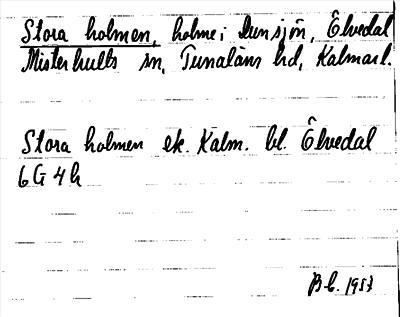 Stora holmen, holme i Dunsjön, Ölvedal
Misterhults sn, Tunaläns hd, Kalmar l.
Stora holmen ek. Kalm. bl. Ölvedal
6G 4h
Bb. 1953